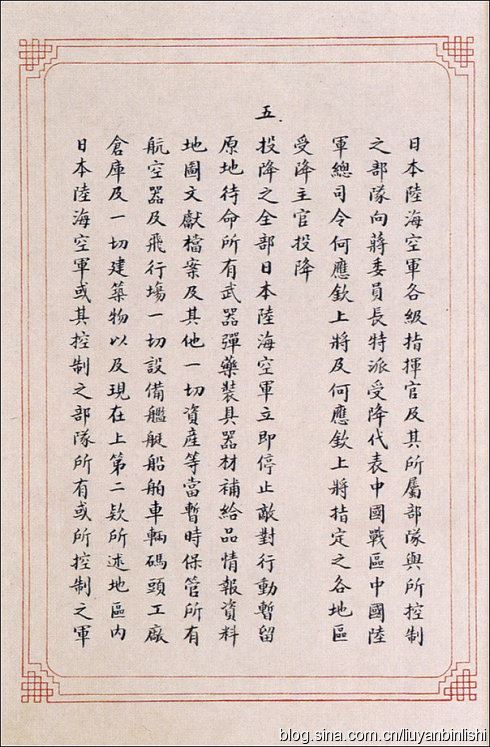 日本陸海空軍各級指揮官及其所屬部隊與所控制
之部隊向蔣委員長特派受降代表中國戰區中國陸
軍總司令何應欽上將及何應欽上將指定之各地區
受降主官投降
五.投降之全部日本陸海空軍立即停止敵對行動暫留
原地待命所有武器彈藥裝具器材補給品情報資料
地圖文獻檔案及其他一切資產等當暫時保管所有
航空器及飛行場一切設備艦艇船舶車輛碼頭工廠
倉庫及一切建築物以及現在上第二欵所述地區內
日本陸海空軍或其控制之部隊所有或所控制之軍
blog.sina.com.cn/liuyanbinlishi